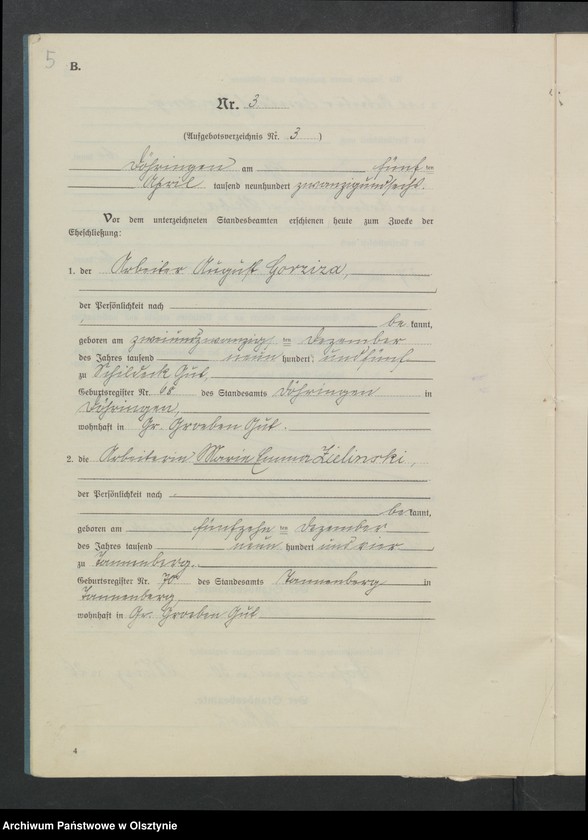 5
B.
Nr. 3
(Aufgebotsverzeichnis Nr. 3)
Döhringen am fünften
April tausend neunhundert zwanzigundsechs.
Vor dem unterzeichneten Standesbeamten erschienen heute zum Zwecke der
Eheschließung:
1. der Arbeiter August Gorziza,
der Persönlichkeit nach
bekannt,
geboren am zweiundzwanzigsten Dezember
des Jahres tausend neunhundert undfünf
zu Schildeck Gut,
Geburtsregister Nr. 68 des Standesamts Döhringen in
Döhringen,
wohnhaft in Gr. Groeben Gut.
2. die Arbeiterin Marie Emma Zielinski,
der Persönlichkeit nach
bekannt,
geboren am fünfzehnten Dezember
des Jahres tausend neunhundert und vier
zu Tannenberg.
Geburtsregister Nr. 70 des Standesamts Tannenberg in
Tannenberg
wohnhaft in Gr. Groeben Gut
4
Archiwum Państwowe w Olsztynie